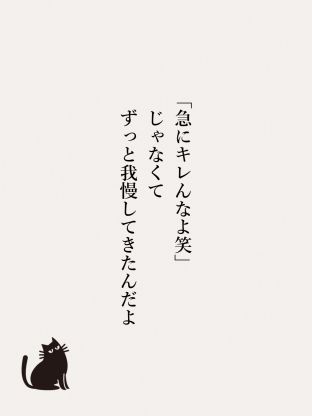 「急にキレんなよ笑」
じゃなくて
ずっと我慢してきたんだよ